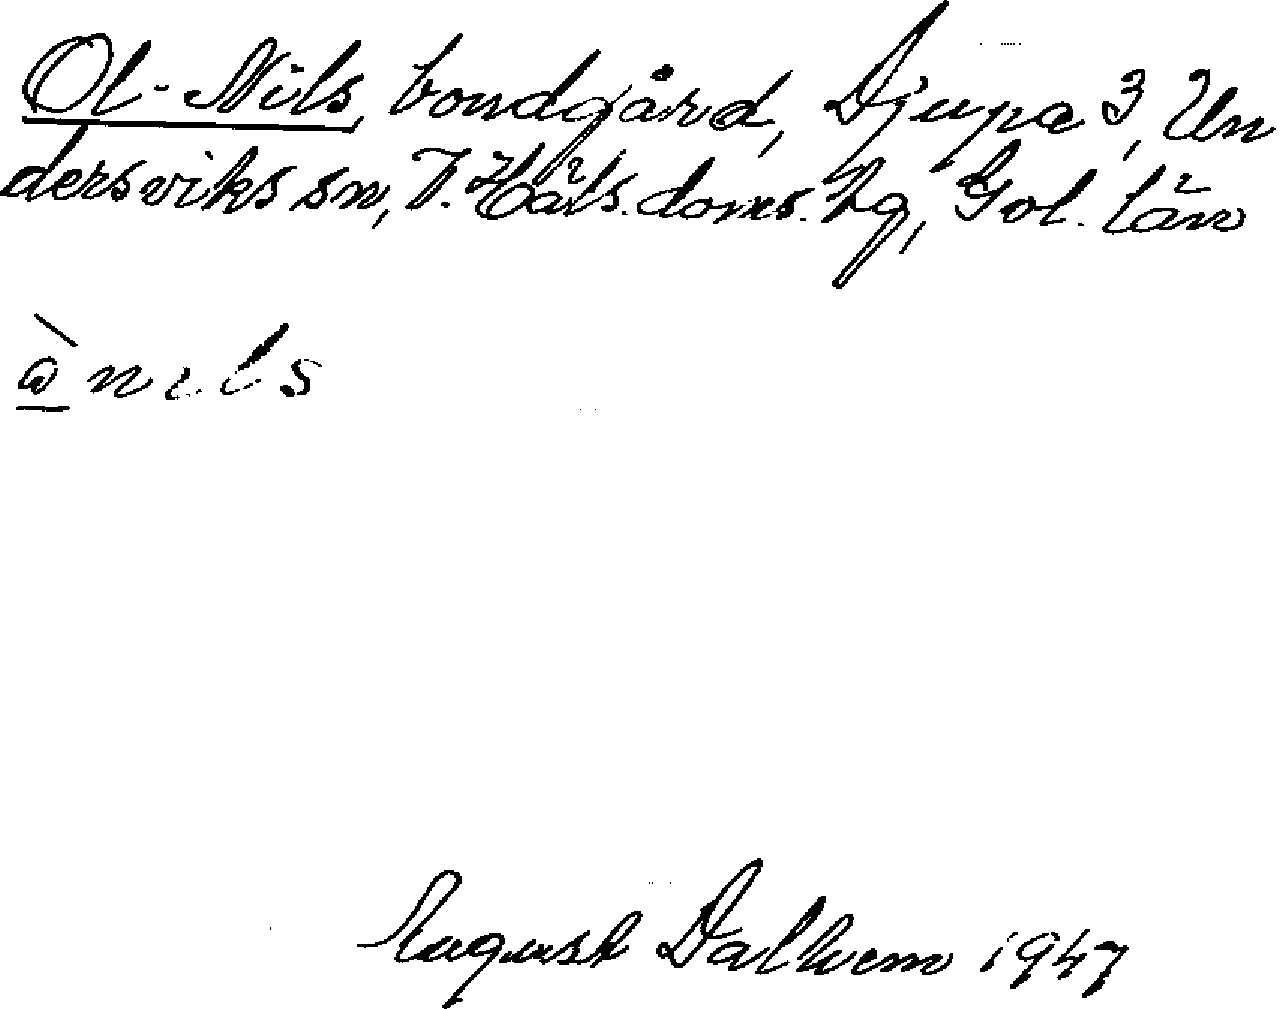 Ol-Nils, bondgård, Djupa 3, Un
dersviks sn, V. Häls. doms. hg, Gol. län
ànils
August Dalhem 1947